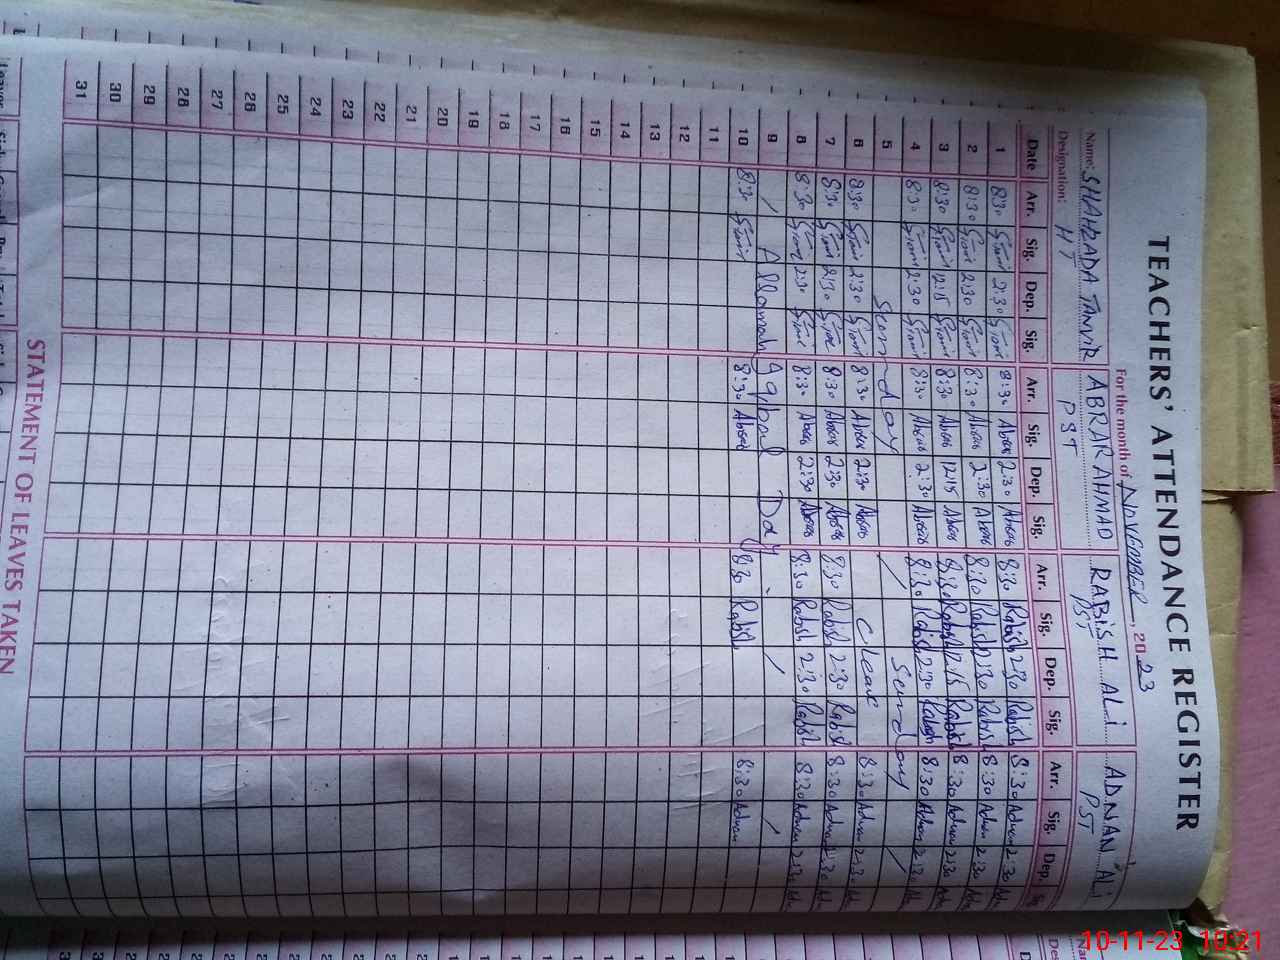 TEACHERS' ATTENDANCE REGISTER
For the month of NOVEMBER, 2023
Name: SHAHZADA TANVIR ABRAR AHMAD RABISH ALI ADNAN ALI
Designation: HT PST PST PST
Date Arr. Sig. Dep. Sig. Arr. Sig. Dep. Sig. Arr. Sig. Dep. Sig. Arr. Sig. Dep. Sig.
1 8:30 2:30 8:30 Abrar 2:30 Abrar 8:30 Rabish 2:30 Rabish 8:30 Adnan 2:30
2 8:30 2:30 8:30 Abrar 2:30 Abrar 8:30 Rabish 2:30 Rabish 8:30 Adnan 2:30
3 8:30 12:15 8:30 Abrar 12:15 Abrar 8:30 Rabish 12:15 Rabish 8:30 Adnan 2:30
4 8:30 2:30 8:30 Abrar 2:30 Abrar 8:30 Rabish 2:30 Rabish 8:30 Adnan 2:30
5 Sunday / Sunday /
6 8:30 2:30 8:30 Abrar 2:30 Abrar C leave 8:30 Adnan 2:30
7 8:30 2:30 8:30 Abrar 2:30 Abrar 8:30 Rabish 2:30 Rabish 8:30 Adnan 2:30
8 8:30 2:30 8:30 Abrar 2:30 Abrar 8:30 Rabish 2:30 Rabish 8:30 Adnan 2:30
9 / Allamah Iqbal Day / /
10 8:30 8:30 Abrar 8:30 Rabish 8:30 Adnan
11
12
13
14
15
16
17
18
19
20
21
22
23
24
25
26
27
28
29
30
31
STATEMENT OF LEAVES TAKEN
10-11-23 10:21